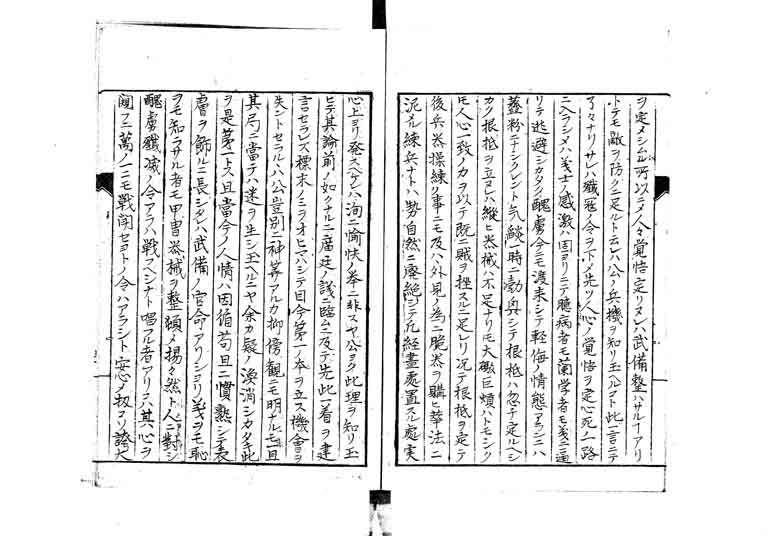 ヲ定メシムル所以ニテ人々覚悟定リヌレハ武備整ハサルナ{アリ
トテモ敵ヲ防クニ足ルト云レハ公ノ兵機ヲ知リ玉ハルコト此一言ニテ
了々ナリサレハ殲冦ノ令ヲ下メ先ツ人心ノ覚悟ヲ定心死ノ路
ニ入ラシメハ義士ノ感激ハ固ヨリニテ臆病者モ蘭学者モ
リテ逃避シカタク醜虜今ニモ渡来シテ軽侮ノ情態アランニハ
虀粉ニナシクレント一時ニ奮興シテ根柢ハ忽チ定ルヘシ
カク根柢ヲ立ヌレハ縦ヒ器械ハ不足ナリモ大礮巨煩ハトモシク
モ人心一致ノ力ヲ以テ既ニ賊ヲ挫スルニ足レリ况テ根柢ヲ定テ
後兵器操練ノ事ニモ及ハ外見ノ為ニ脆器ヲ購ヒ華法ニ
泥ム練兵ナトハ勢自然ニ廃絶シテ凡経畫處置スル處実
心上ヨリ発スヘケレハ洵ニ愉快ノ挙ニ非スヤ公ヨク此理ヲ知リ玉
ヒテ其論前ノ如クナルニ廟廷ノ議ニ臨ムニ及テ先此一着ヲ建
言セラレズ標末ノミヲオヒマハシテ目今第一ノ本ヲ立ス機會ヲ
失ントセラルハ公豈別ニ神算アルカ抑傍観ニモ明ナルモ一旦
其局ニ當テハ迷ヲ生シ玉ヘルニヤ余カ疑ノ渙消シカタキ此
ヲ是第一トス且當今ノ人情ハ因循苟且ニ慣熟シテ表
膚ヲ飾ルニ長シタレハ武備ノ官命アリシヨリ義ヲモ恥
ヲモ知ラサル者モ甲冑器械ヲ整頓メ揚々然ト人ニ對シ
醜虜殲滅ノ令アラハ戦フヘシナト唱フル者アリスハ其心ヲ
闚フニ萬ノ一ニモ戦闘セヨトノ令ハアラシト安心メ扨コソ誇大